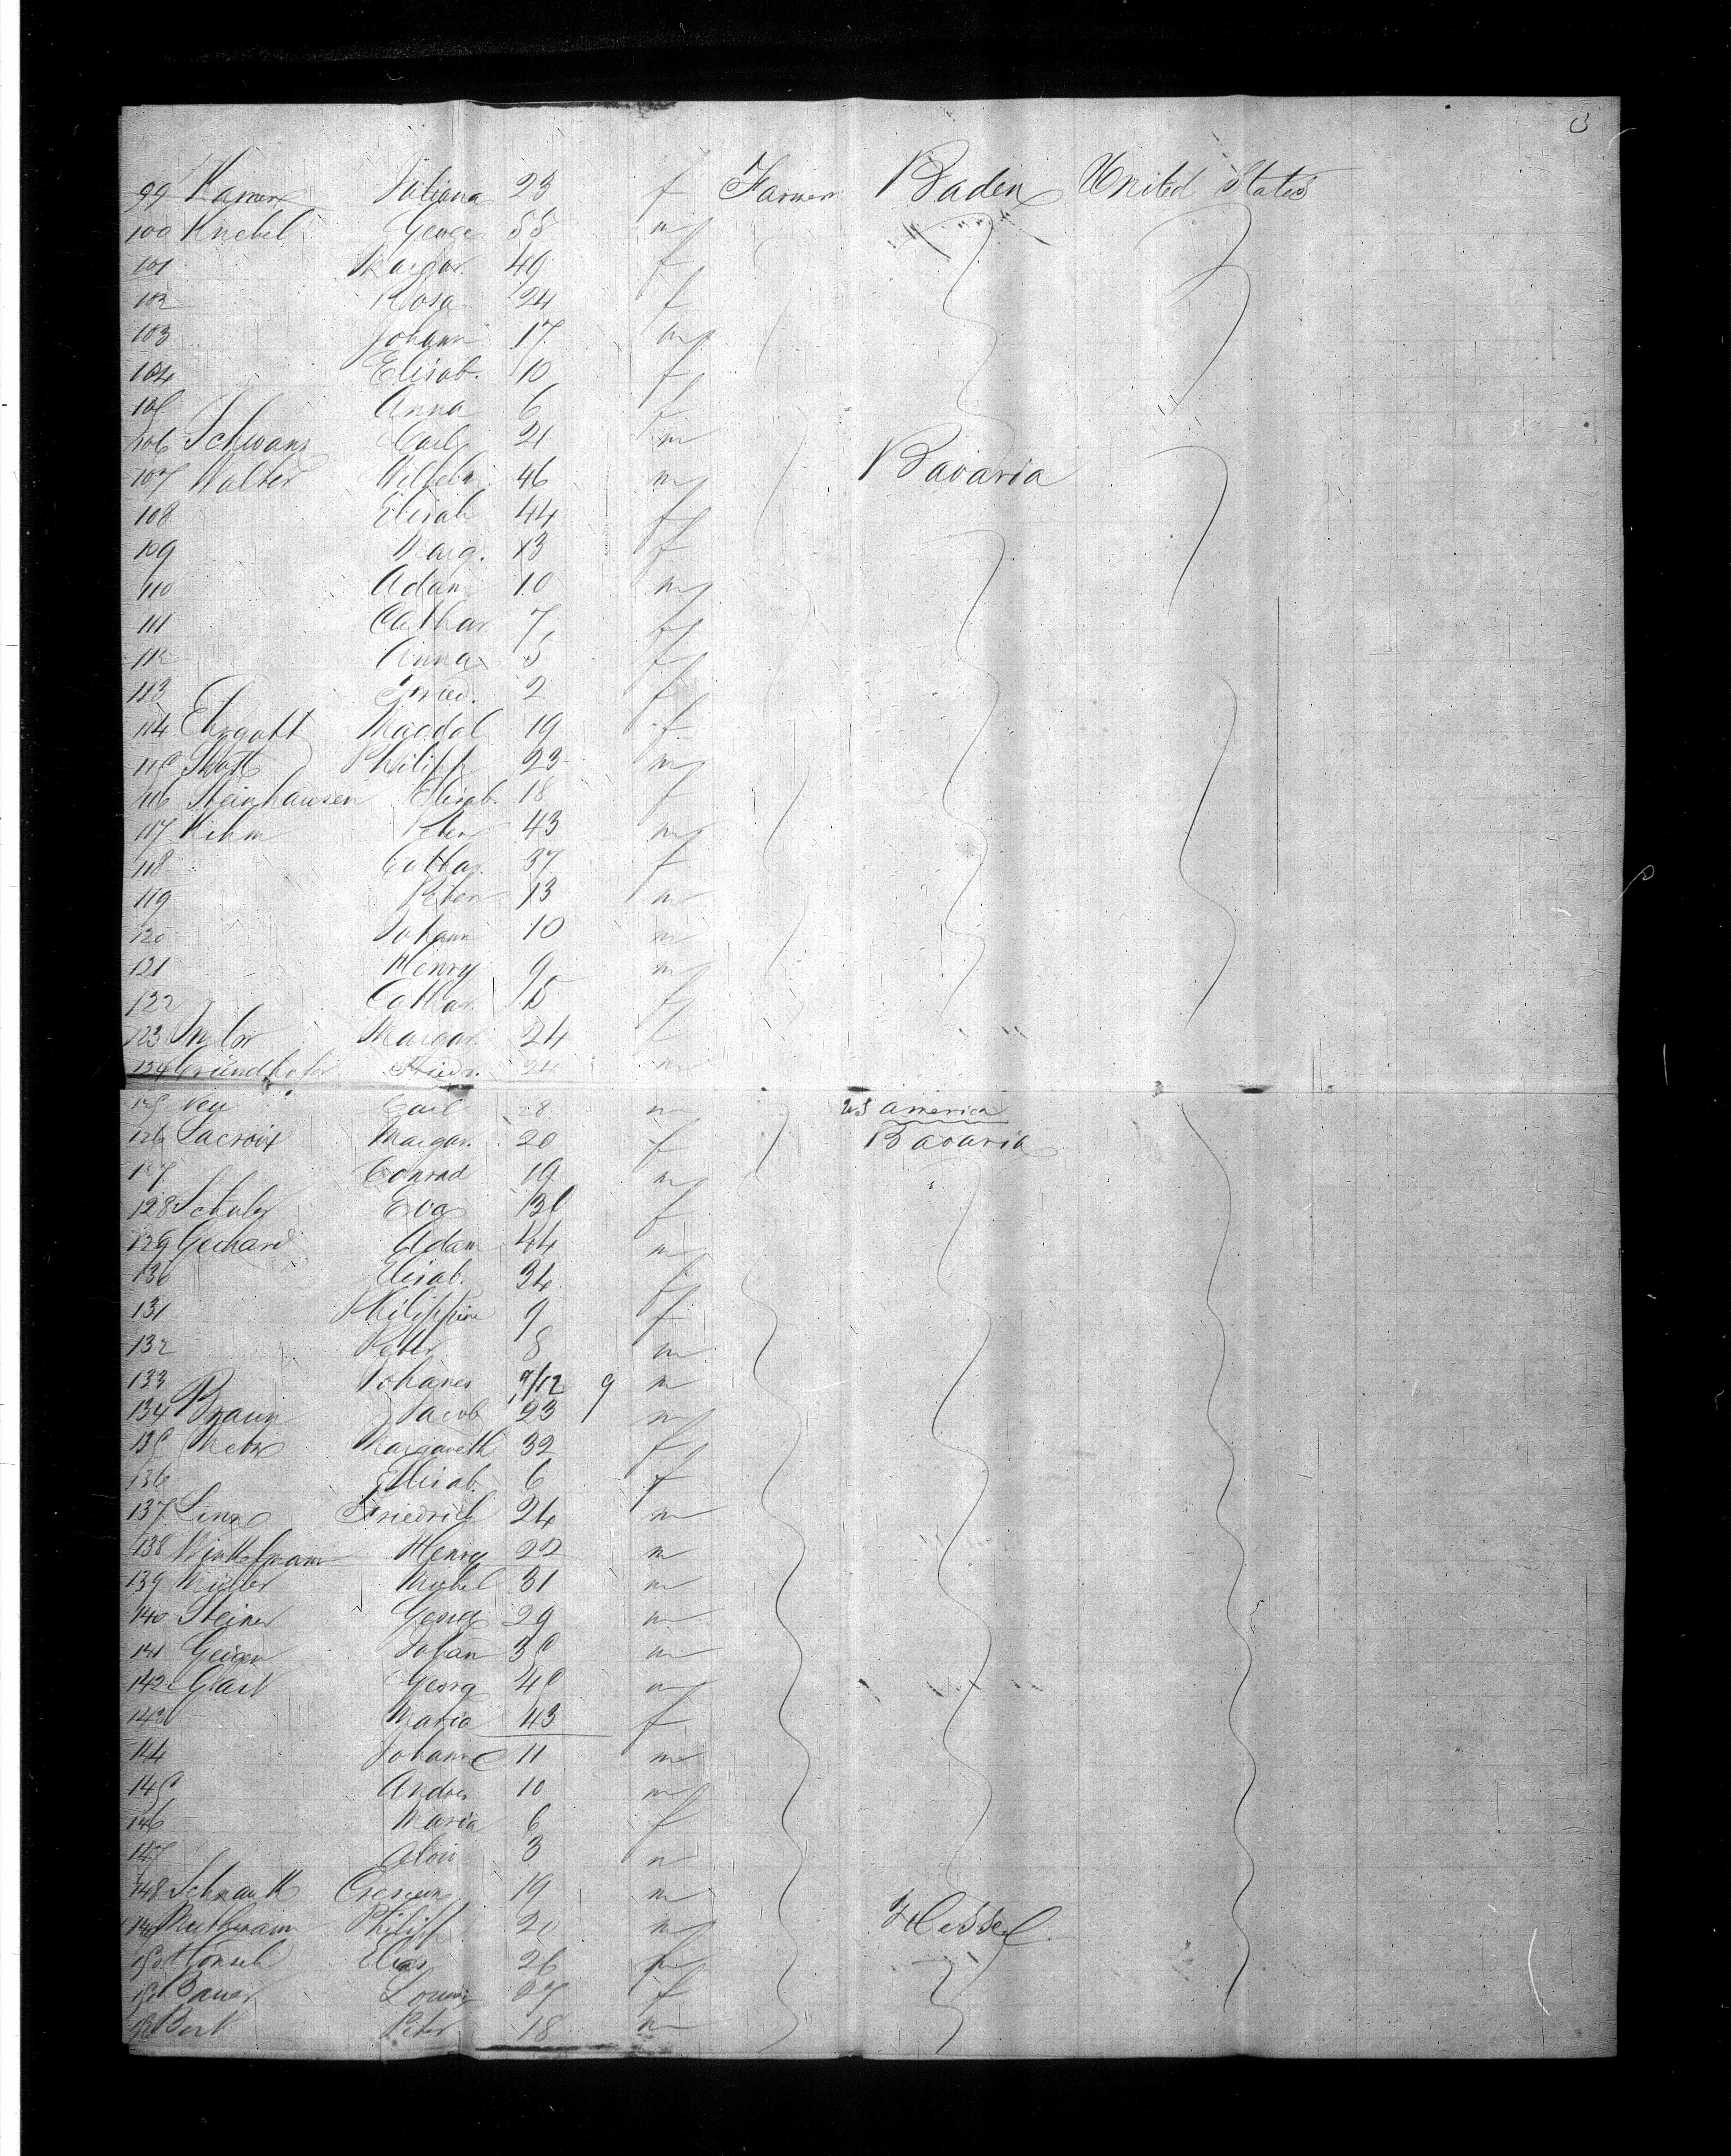 99 Juliana 23 f Farmer Baden United States
100 Knebel George 55 m
101 Margar. 49 f
102 Rosa 24 f
103 Johann 17 m
104 Elisab. 10 f
105 Anna 6 f
106 Schwanz Carl 21 m
107 Walter Wilhelm 46 m Bavaria
108 Elisab 44 f
109 Marg. 13 f
110 Adam 10 m
111 Cathar 7 f
112 Anna 5 f
113 Fried. 2 f
114 Ehrgott Magdal 19 f
115 Philipp 23 m
116 Steinhausen Elisab. 18 f
117 Kihm Peter 43 m
118 Cathar. 37 f
119 Peter 13 m
120 Johann 10 m
121 Henry 9 m
122 Cathar. 5 f
123 Margar. 24 f
124 Gründhofer Friedr. 24 m
125 Ney Carl 28 m US america
126 Lacroix Margar. 20 f Bavaria
127 Conrad 19 m
128 Schuler Eva f
129 Gechard Adam 44 m
130 Elisab. 34 f
131 Philippine 9 f
132 Peter 8 m
133 Johanes 9/12 9 m
134 Braun Jacob 23 m
135 Margareth 32 f
136 Elisab. 6 f
137 Linz Friedrich 24 m
138 Henry 22 m
139 Müller Michel 31 m
140 Steiner Georg 29 m
141 Geiger Johan 35 m
142 Georg 45 m
143 Maria 43 f
144 Johann 11 m
145 Andres 10 m
146 Maria 6 f
147 Alois 3 m
148 19 m
149 Philipp 20 m Hessel
150 Honsel Elias 26
151 Bauer Louise 27 f
152 Peter 18 m